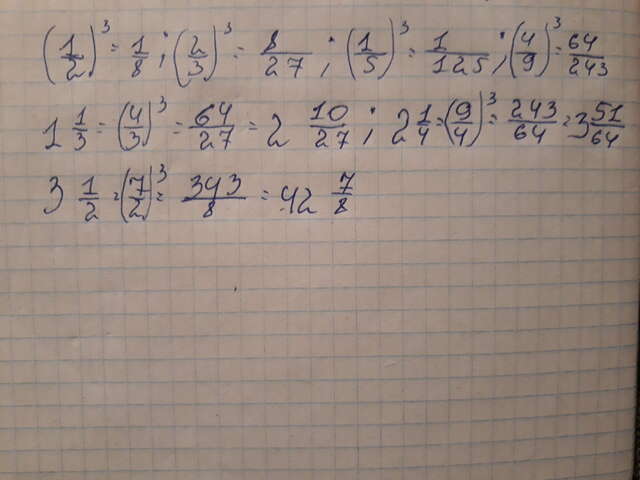 (1/2)³ = 1/8; (2/3)³ = 8/27; (1/5)³ = 1/125; (4/9)³ = 64/243
1 1/3 = (4/3)³ = 64/27 = 2 10/27; 2 1/4 = (9/4)³ = 243/64 = 3 51/64
3 1/2 = (7/2)³ = 343/8 = 42 7/8